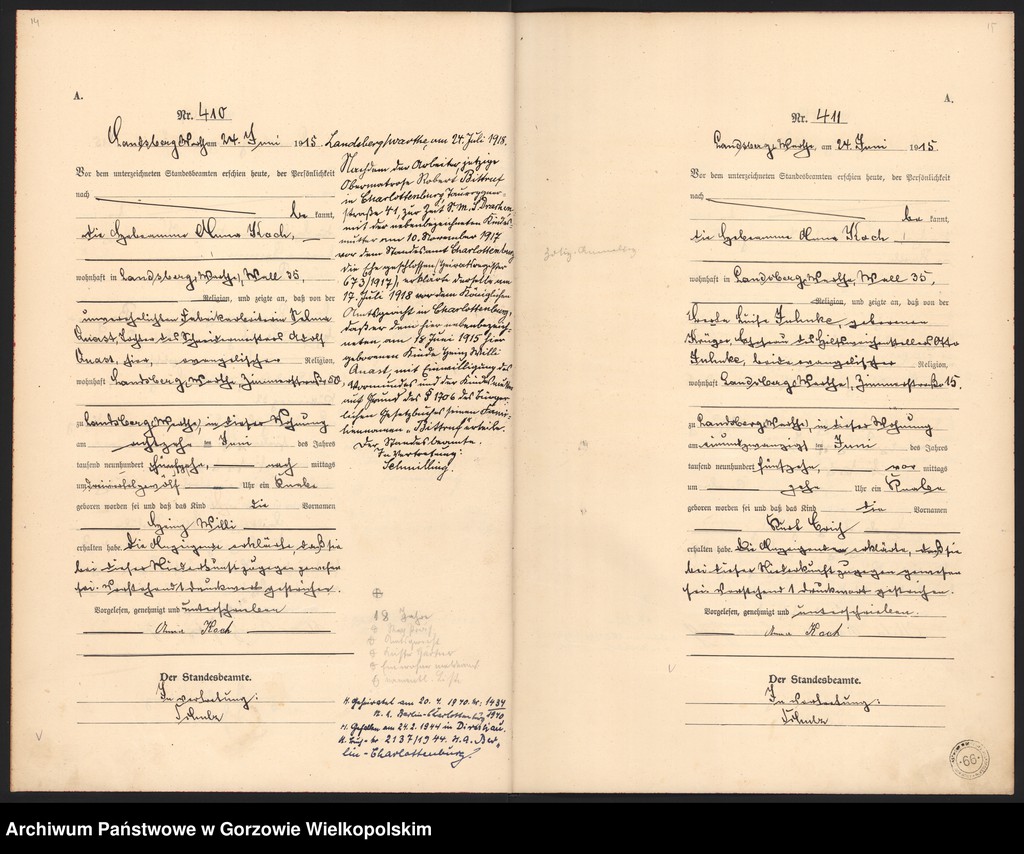 14
A.
Nr. 410
Landsberg Warthe am 24. Juni 1915
Vor dem unterzeichneten Standesbeamten erschien heute, der Persönlichkeit
nach
be kannt,
die Hebeamme Anna Koch,
wohnhaft in Landsberg Warthe, Wall 35,
Religion, und zeigte an, daß von der
unverehelichten Fabrikarbeiterin Selma
Anast, Tochter des Schneidermeisters Adolf
Anast, hier, evangelischer Religion,
wohnhaft Landsberg Warthe, Zimmerstraße 50
zu Landsberg Warthe, in dieser Wohnung
am achtzehn ten Juni des Jahres
tausend neunhundert fünfzehn, nach mittags
um dreiviertelzwölf Uhr ein Knabe
geboren worden sei und daß das Kind die Vornamen
Heinz Willi
erhalten habe. Die Anzeigende erklärte, daß sie
bei dieser Niederkunft zugegen gewesen
sei. Vorstehend 1 Druckwort gestrichen.
Vorgelesen, genehmigt und unterschrieben
Anna Koch
Der Standesbeamte.
In Vertretung:
Landsberg/Warthe am 24. Juli 1918.
Nachdem der Arbeiter, jetzige
Obermatrose Robert Bittruf
in Charlottenburg,
straße 41, zur Zeit S.M.S. Drachen
mit der nebenbezeichneten Kindes-
mutter am 10. November 1917
vor dem Standesamt Charlottenburg
die Ehe geschlossen (Heiratsregister
673/1917), erklärte derselbe am
17. Juli 1918 vor dem Königlichen
Amtsgericht in Charlottenburg,
daß er dem hier nebenbezeich-
neten, am 18. Juni 1915 hier
geborenen Kinde Heinz Willi
Anast, mit Einwilligung des
Vormundes und der Kindesmutter
auf Grund des § 1706 des Bürger-
lichen Gesetzbuches seinen Fami-
liennamen "Bittruf" erteile.
Der Standesbeamte.
In Vertretung:
Schmilling.
18 Jahre
H. Geheiratet am 20. 4. 1940 Nr. 1434
1940
H. Gefallen am 24. 2. 1944 in
Nr. 2137/1944. H.A. Ber-
lin-Charlottenburg.
15
A.
Nr. 411
Landsberg Warthe, am 24. Juni 1915
Vor dem unterzeichneten Standesbeamten erschien heute, der Persönlichkeit
nach
be kannt,
die Hebeamme Anna Koch
wohnhaft in Landsberg Warthe, Wall 35,
Religion, und zeigte an, daß von der
Luise Juhnke, geborenen
Krüger, Ehefrau des Hilfsweichenstellers Otto
Juhnke, beide evangelischer Religion,
wohnhaft Landsberg Warthe, Zimmerstraße 15,
zu Landsberg Warthe, in dieser Wohnung
am einundzwanzigsten Juni des Jahres
tausend neunhundert fünfzehn, vor mittags
um zehn Uhr ein Knabe
geboren worden sei und daß das Kind die Vornamen
Kurt Erich
erhalten habe. Die Anzeigende erklärte, daß sie
bei dieser Niederkunft zugegen gewesen
sei. Vorstehend 1 Druckwort gestrichen.
Vorgelesen, genehmigt und unterschrieben.
Anna Koch
Der Standesbeamte.
In Vertretung:
66
Archiwum Państwowe w Gorzowie Wielkopolskim